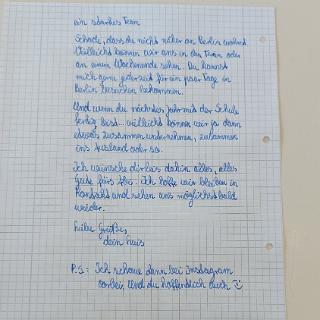 ein starkes Team
Schade, dass du nicht näher an Berlin wohnst
Vielleicht können wir uns in den Ferien oder
an einem Wochenende sehen. Du kannst
mich gern jederzeit für ein paar Tage in
Berlin besuchen kommen.
Und wenn du nächstes Jahr mit der Schule
fertig bist... vielleicht können wir ja dann
etwas zusammen unternehmen, zusammen
ins Ausland oder so.
Ich wünsche dir bis dahin alles, alles
Gute fürs Abi. Ich hoffe wir bleiben in
Kontakt und sehen uns möglichst bald
wieder.
Liebe Grüße,
dein
P.S.: Ich schaue dann bei Instagram
vorbei und du hoffentlich auch